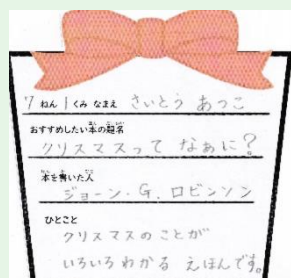 7 ねん 1 くみ なまえ さいとう あつこ
おすすめしたい本の題名
クリスマスって なぁに?
本を書いた人
ジョーン・G. ロビンソン
ひとこと
クリスマスのことが
いろいろわかる えほんです。